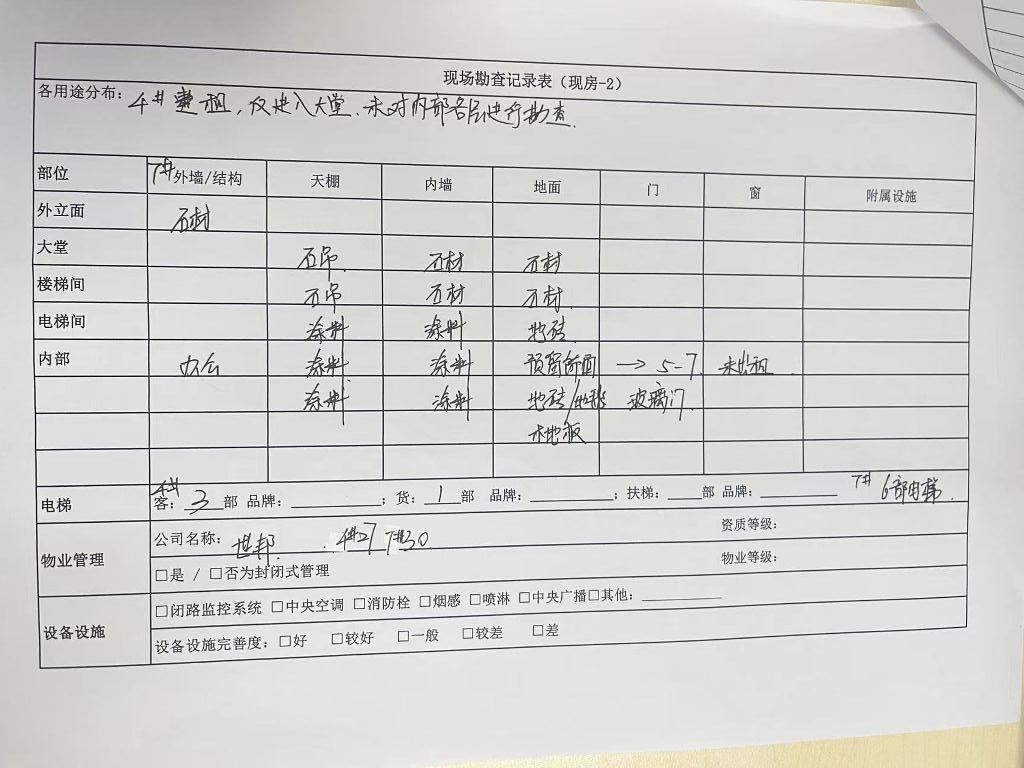 现场勘查记录表（现房-2）
各用途分布：4# 整租，仅进入大堂、未对内部各层进行勘查.
部位 7#外墙/结构 天棚 内墙 地面 门 窗 附属设施
外立面 石材
大堂 石吊. 石材 石材
楼梯间 石吊 石材 石材.
电梯间 涂料 涂料 地砖.
内部 办公 涂料 涂料 预留断面 → 5-7. 未出租.
涂料 涂料 地砖/地毯 玻璃门.
木地板
电梯 4# 客：3部 品牌：______；货：1部 品牌：______；扶梯：____部 品牌：______ 7# 6部电梯.
物业管理 公司名称：世邦. 4#27 7#30 资质等级：
□是 / □否为封闭式管理 物业等级：
设备设施 □闭路监控系统 □中央空调 □消防栓 □烟感 □喷淋 □中央广播□其他：______
设备设施完善度：□好 □较好 □一般 □较差 □差